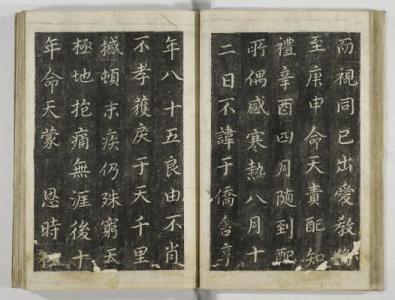 而視同已出愛敎
至庚申命天責配知
禮辛酉四月隨到配
所偶感寒熱八月十
二日不諱于僑舍享
年八十五良由不肖
不孝獲戾于天千里
撼頓末疾仍殊窮天
極地抱痛無涯後十
年命天蒙恩時